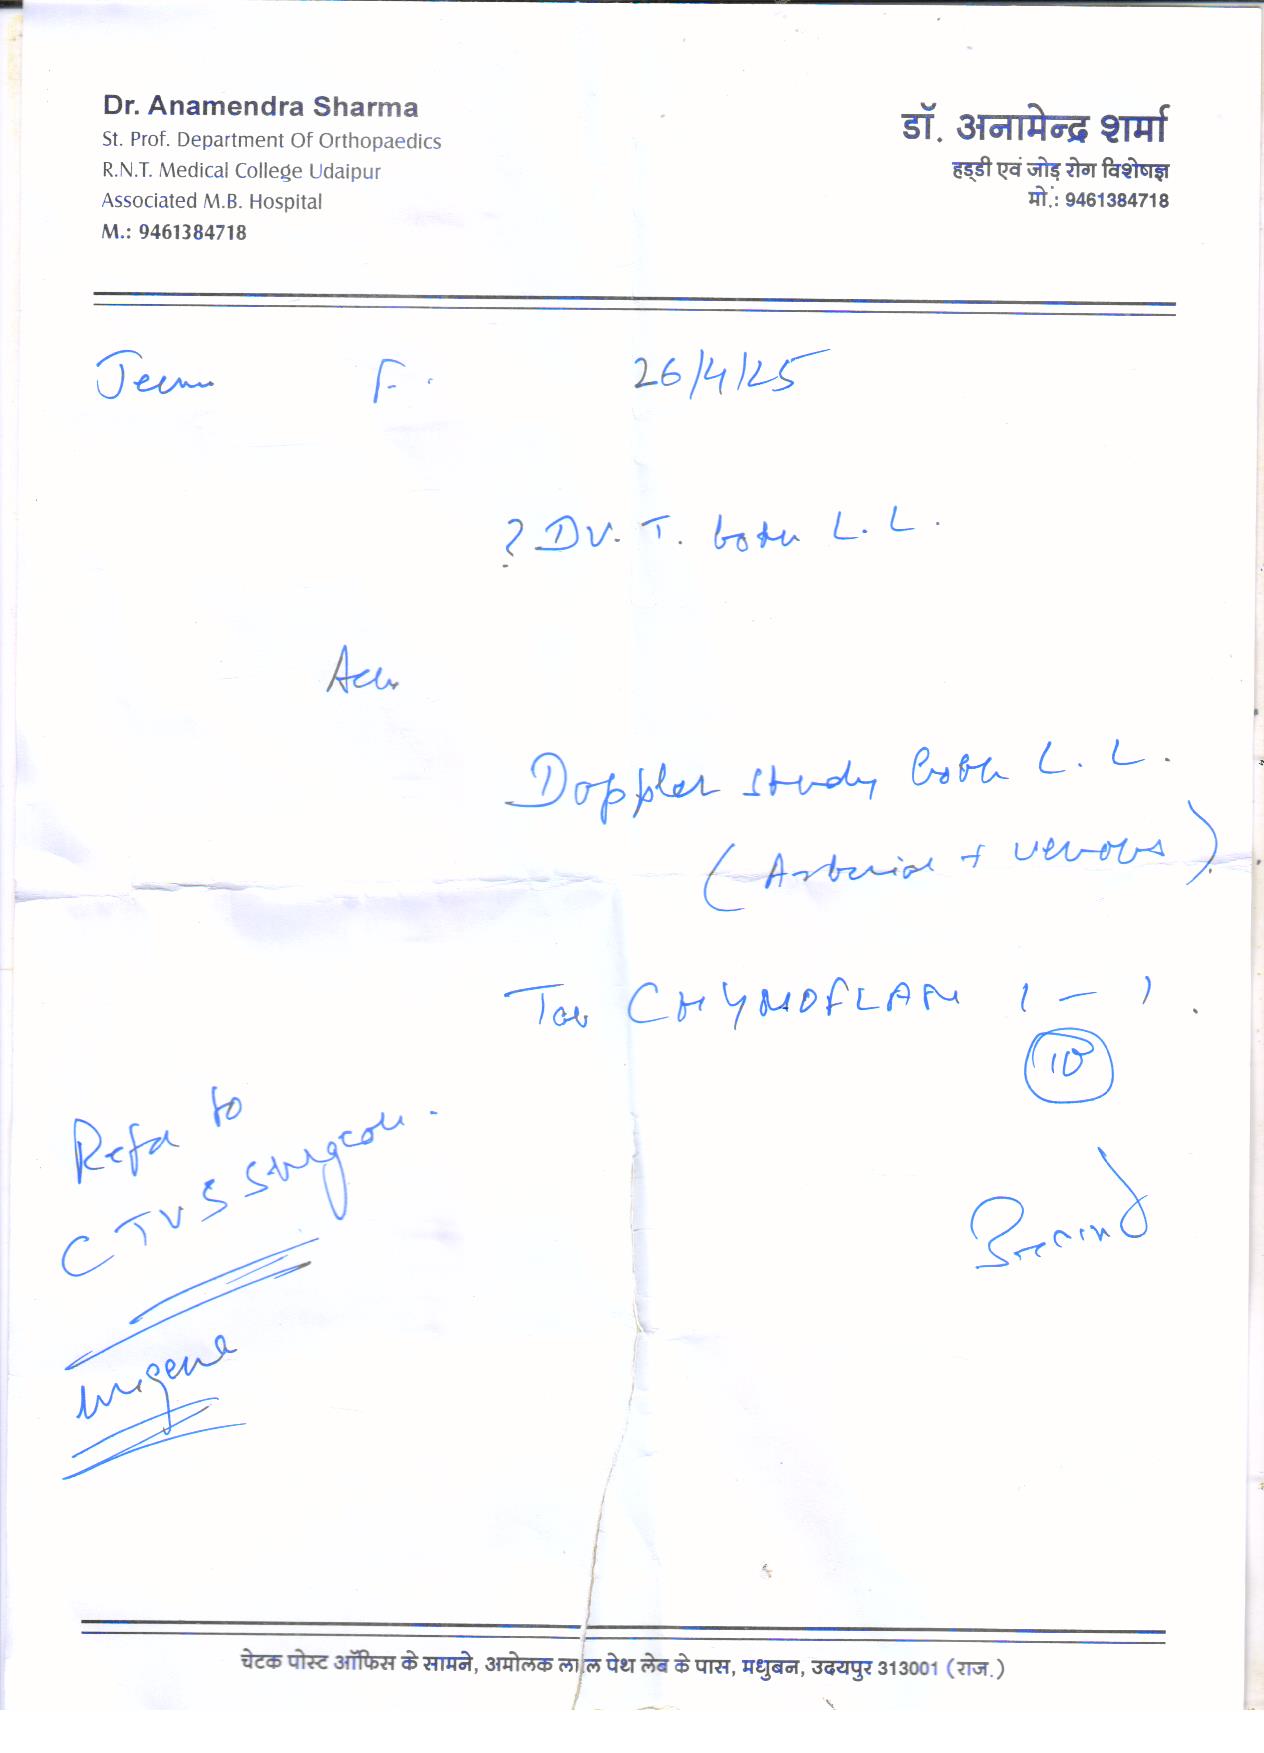 Dr. Anamendra Sharma
St. Prof. Department Of Orthopaedics
R.N.T. Medical College Udaipur
Associated M.B. Hospital
M.: 9461384718
डॉ. अनामेन्द्र शर्मा
हड्डी एवं जोड़ रोग विशेषज्ञ
मो.: 9461384718
F. 26/4/25
? DV. T. both L. L.
Doppler study both L. L.
(Arterial + venous)
Tab CHYMOFLAM 1 - 1
10
Refer to
CTVS Surgeon.
urgent
चेटक पोस्ट ऑफिस के सामने, अमोलक लाल पेथ लेब के पास, मधुबन, उदयपुर 313001 (राज.)